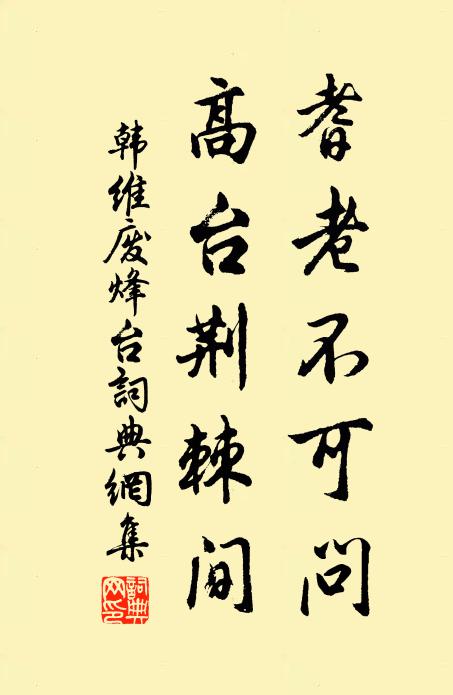 耆老不可问
高台荆棘间
韩维废烽台詞典網集
詞典
网印